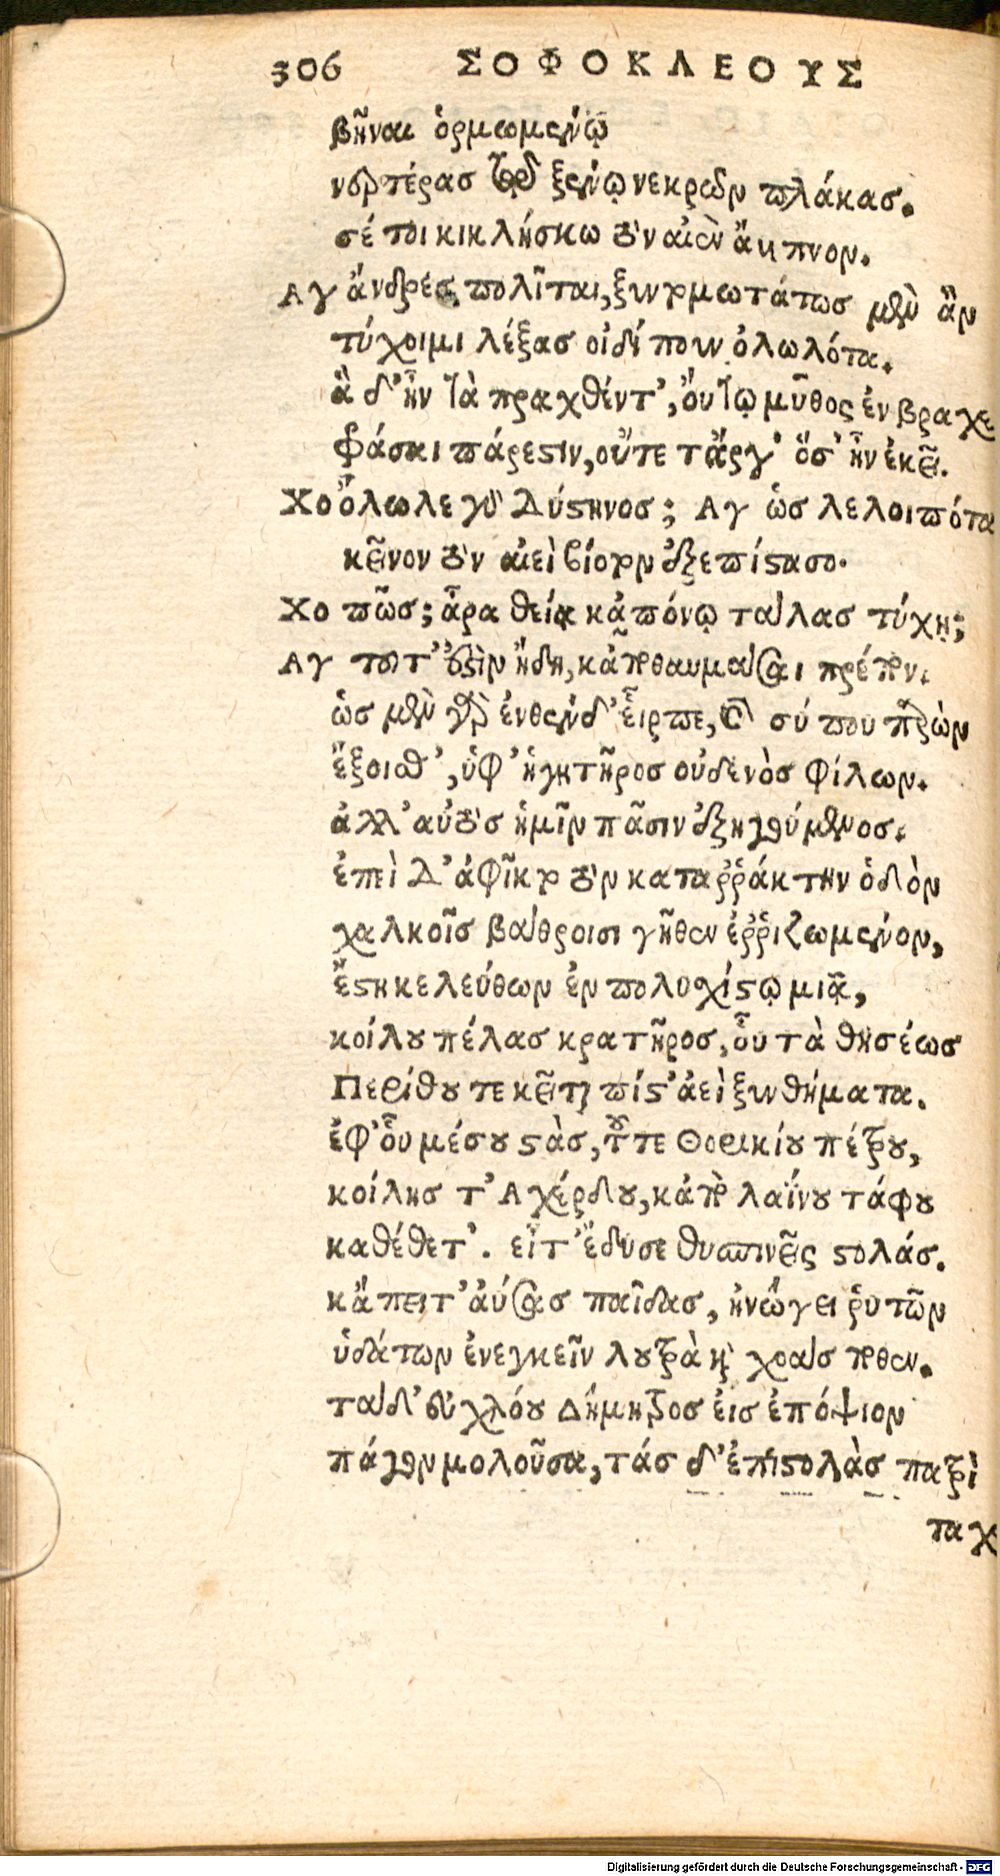 306 ΣΟΦΟΚΛΕΟΥΣ
βῆναι ὁρμωμένῳ
νερτέρας τῷδε ξένῳ νεκρῶν πλάκας.
σέ τοι κικλήσκω τὸν αἰὲν ἄϋπνον.
Αγ ἄνδρες πολῖται, ξυντομωτάτως μὲν ἂν
τύχοιμι λέξας οἰδίπουν ὀλωλότα.
ἃ δ' ἦν τὰ πραχθέντ', ὄυτῳ μῦθος ἐν βραχε
φράσαι πάρεστιν, οὔτε τἄργ' ὅσ' ἦν ἐκεῖ.
Χο ὄλωλε γὸ δύστηνος; Αγ ὡς λελοιπότα
κεῖνον τὸν αἰεὶ βίοτον ἐξεπίστασο.
Χο πῶς; ἆρα θείᾳ κἀπόνῳ τάλας τύχῃ;
Αγ τοῦτ' ἐστὶν ἤδη, κἀποθαυμάσαι πρέπον.
ὡς μὲν γὰρ ἐνθένδ' εἷρπε, καὶ σύ που παρὼν
ἔξοισθ', ὑφ' ἡγητῆρος οὐδενὸς φίλων.
ἀλλ' αὐτὸς ἡμῖν πᾶσιν ἐξηγούμενος.
ἐπεὶ δ' ἀφῖκτο τὸν καταῤῥάκτην ὁδὸν
χαλκοῖς βάθροισι γῆθεν ἐῤῥιζωμένον,
ἔστη κελεύθων ἐν πολυσχίστῳ μιᾷ,
κοίλου πέλας κρατῆρος, οὗ τὰ θησέως
Περίθου τε κεῖται πίστ' ἀεὶ ξυνθήματα.
ἐφ' οὗ μέσου στὰς, τοῦ τε Θορικίου πέτρου,
κοίλης τ' Αχέρδου, κἀπὸ λαΐνου τάφου
καθέθετ'. εἶτ' ἔδυσε δυσπινεῖς στολάς.
κἄπειτ' ἀύσας παῖδας, ἠνώγει ῥυτῶν
ὑδάτων ἐνεγκεῖν λουτρὰ καὶ χοάς ποθεν.
ταὶ δ' εὐχλόου Δήμητρος εἰς ἐπόψιον
πάγον μολοῦσα, τάσδ' ἐπιστολὰς πατρὶ
ταχ
Digitalisierung gefördert durch die Deutsche Forschungsgemeinschaft - DFG